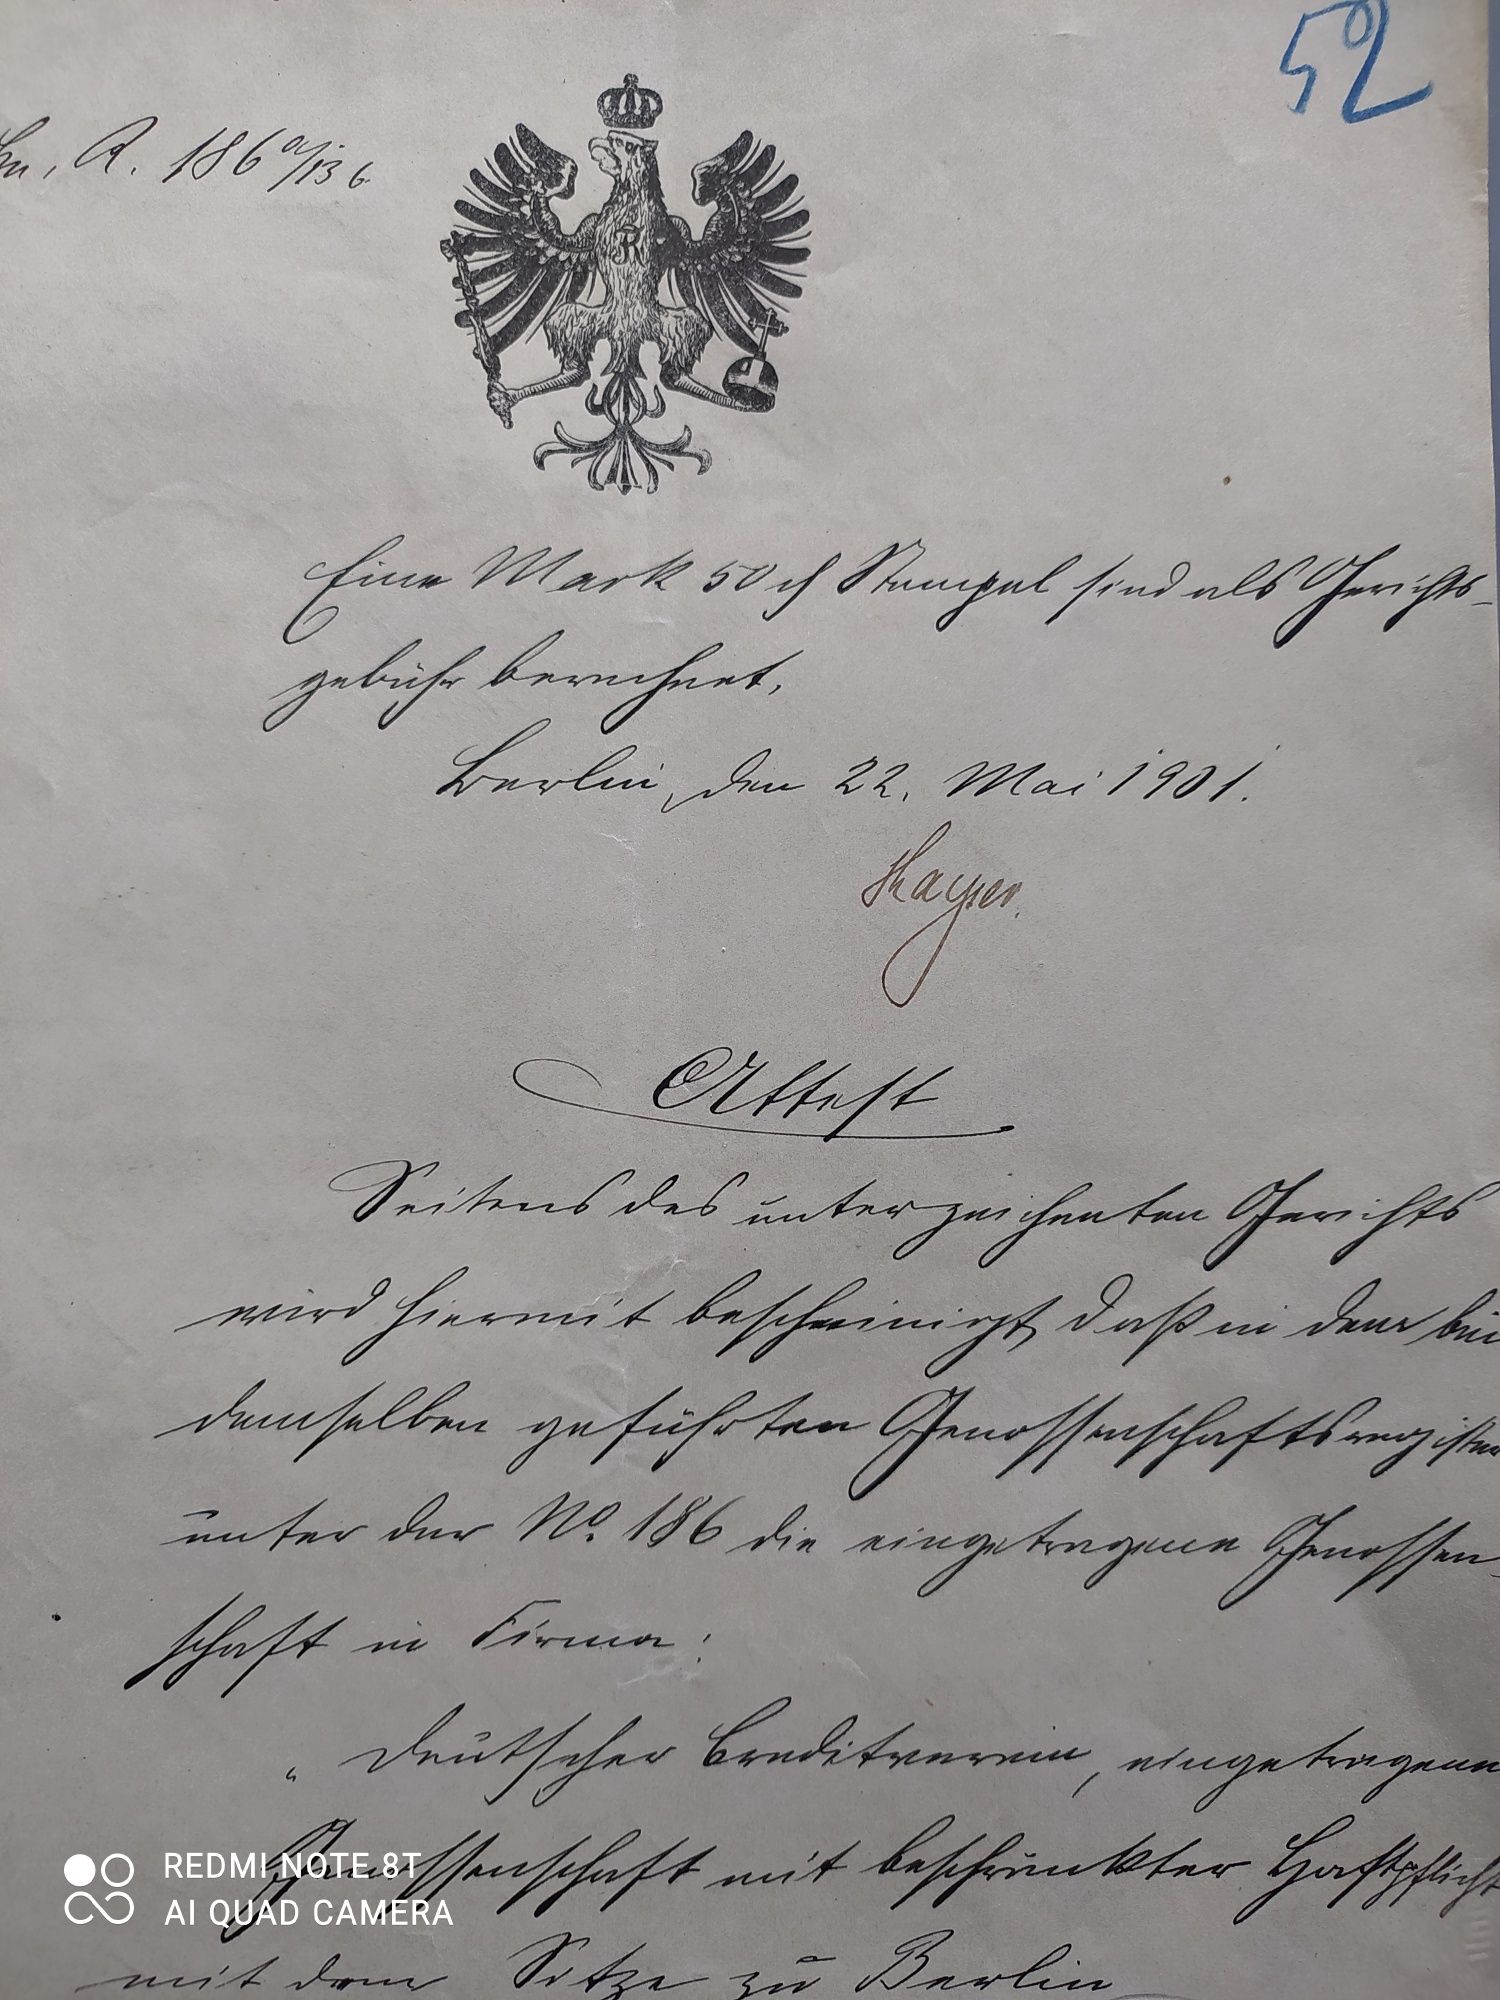 52
Gn. R. 186 a/136
Eine Mark 50 ₰ Stempel sind als Gerichts-
gebühr berechnet.
Berlin, den 22. Mai 1901.
Kayser.
Attest
Seitens des unterzeichneten Gerichts
wird hiermit bescheinigt, daß in dem bei
demselben geführten Genossenschaftsregister
unter der No. 186 die eingetragene Genossen-
schaft in Firma:
„Deutscher Creditverein, eingetragene
Genossenschaft mit beschränkter Haftpflicht
mit dem Sitze zu Berlin
R
REDMI NOTE 8T
AI QUAD CAMERA